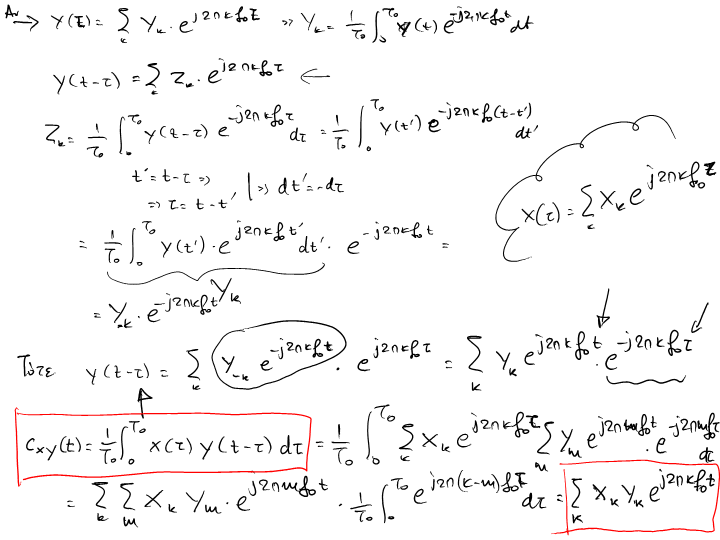 Αν → y(τ) = Σ_k Y_k · e^{j2πkf₀τ} ⇒ Y_k = 1/T₀ ∫₀^{T₀} y(t) e^{-j2πkf₀t} dt
y(t-τ) = Σ_k Z_k · e^{j2πkf₀τ} ←
Z_k = 1/T₀ ∫₀^{T₀} y(t-τ) e^{-j2πkf₀τ} dτ = 1/T₀ ∫₀^{T₀} y(t') e^{-j2πkf₀(t-t')} dt'
t' = t-τ ⇒ | ⇒ dt' = -dτ
⇒ τ = t-t'
x(τ) = Σ_k X_k e^{j2πkf₀τ}
= 1/T₀ ∫₀^{T₀} y(t') · e^{j2πkf₀t'} dt' · e^{-j2πkf₀t} =
Y_{-k}
= Y_{-k} · e^{-j2πkf₀t}
Τότε y(t-τ) = Σ_k Y_{-k} e^{-j2πkf₀t} · e^{j2πkf₀τ} = Σ_k Y_k e^{j2πkf₀t} · e^{-j2πkf₀τ}
c_{xy}(t) = 1/T₀ ∫₀^{T₀} x(τ) y(t-τ) dτ = 1/T₀ ∫₀^{T₀} Σ_k X_k e^{j2πkf₀τ} Σ_m Y_m e^{j2πmf₀t} · e^{-j2πmf₀τ} dτ
= Σ_k Σ_m X_k Y_m · e^{j2πmf₀t} · 1/T₀ ∫₀^{T₀} e^{j2π(k-m)f₀τ} dτ = Σ_k X_k Y_k e^{j2πkf₀t}